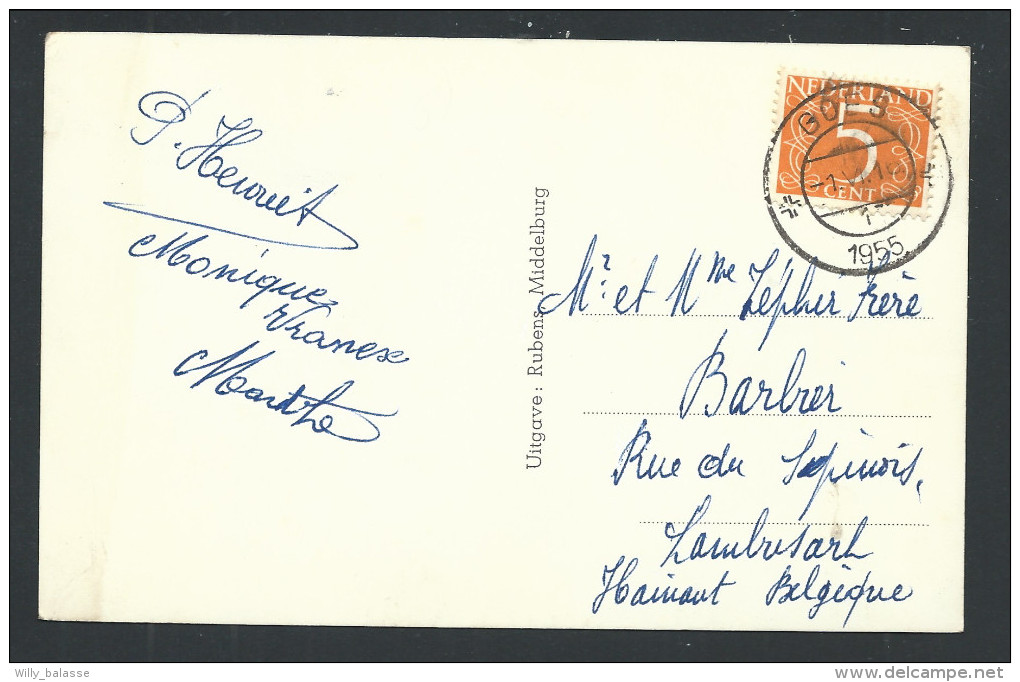 P. Henriet
Monique
Vranex
Marthe
Uitgave: Rubens, Middelburg
NEDERLAND
5
CENT
GOES
1955
Mr. et Mme Zéphir Frère
Barbier
Rue du Sapinois,
Lambusart
Hainaut Belgique
Willy_balasse
www.delcampe.net